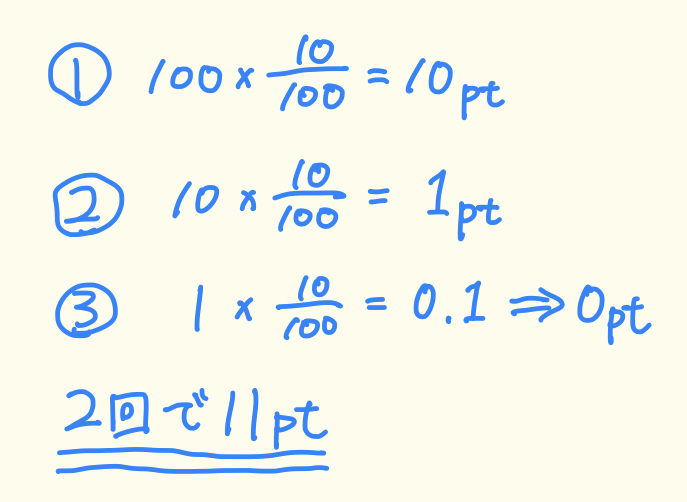 ① 100 × 10/100 = 10pt
② 10 × 10/100 = 1pt
③ 1 × 10/100 = 0.1 ⇒ 0pt
2回で11pt